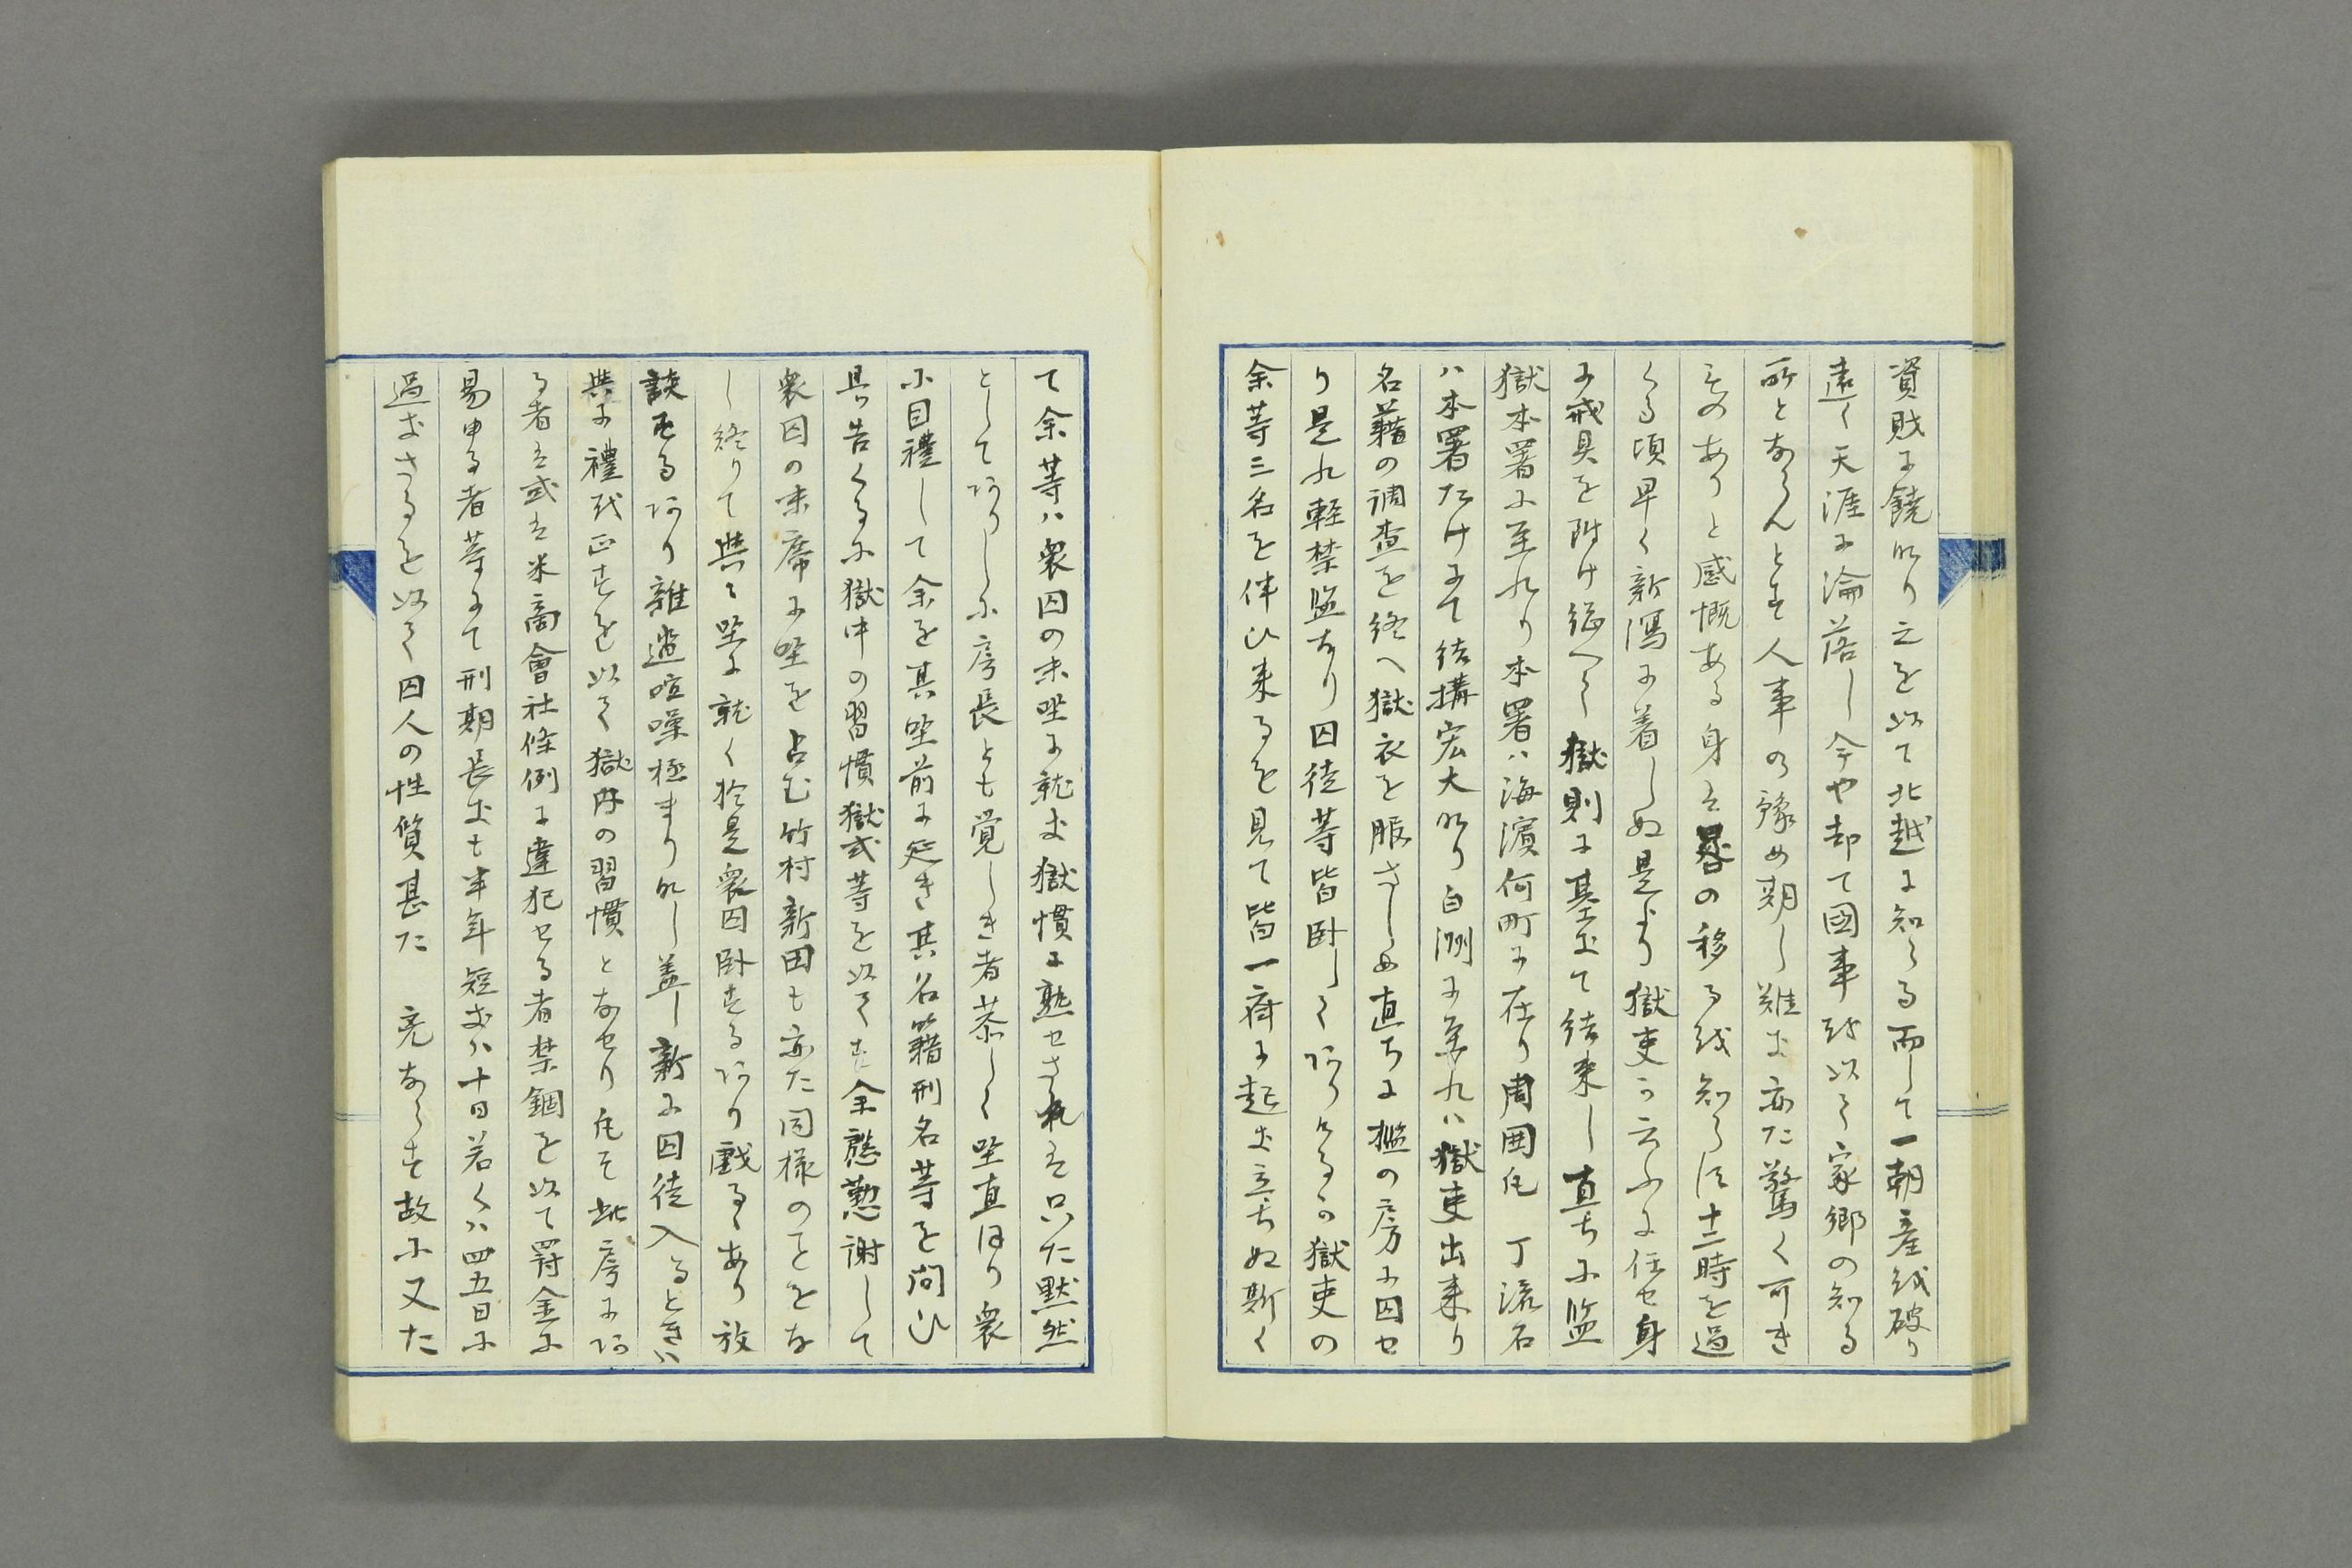 資財に饒なり之を以て北越に知らる而して一朝産を破り
遠く天涯に淪落し今や却て國事を以て家郷の知る
所とならんとす人事の豫め期し難き亦た驚く可き
ものありと感慨ある身は晷の移るを知らす十二時を過
くる頃早く新潟に着しぬ是より獄吏の云ふに任せ身
に戒具を附け徐々獄則に基きて結束し直ちに監
獄本署に至れり本署は海濱何町に在り周囲凡 丁流石
ハ本署たけにて結搆宏大なり白洲に至れハ獄吏出来り
名籍の調査を終へ獄衣を服さしめ直ちに檻の房に囚せ
り是れ軽禁監なり囚徒等皆卧して在りけるか獄吏の
余等三名を伴ひ来るを見て皆一齊に起き立ちぬ斯く
て余等ハ衆囚の末坐に就き獄慣に熟せされは只た黙然
として在りしに房長とも覚しき者恭しく坐直ほり衆
に目禮して余を其坐前に延き其名籍刑名等を問ひ
具告くるに獄中の習慣獄式等を以てす余慇懃謝して
衆囚の末席に坐を占む竹村新田も亦た同様のことをな
し終りて與に坐に就く於是衆囚卧するあり戯るゝあり放
談するあり雑遝喧噪極まりなし蓋し新に囚徒入るときハ
與に禮を正すを以て獄内の習慣となせり凡そ此房に在
る者は或は米商會社條例に違犯せる者禁錮を以て罸金に
易ゆる者等にて刑期長きも半年短きハ十日若くハ四五日に
過きさるを以て囚人の性質甚た 亮ならす故に又た